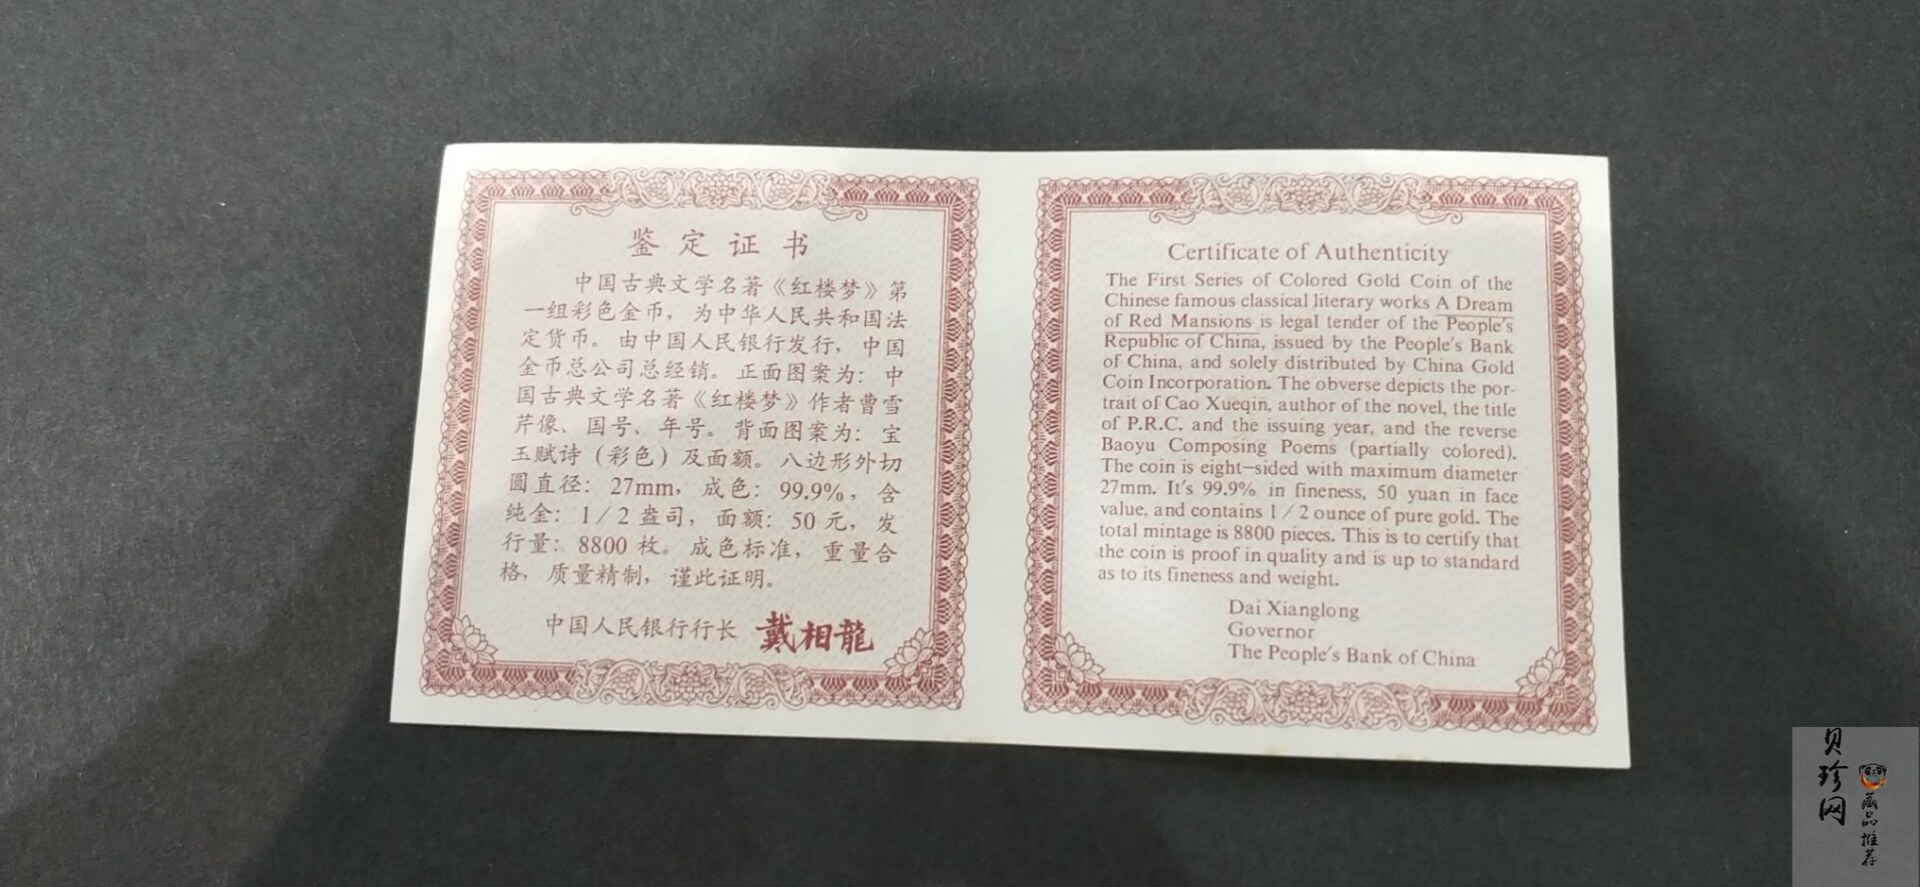 鉴定证书
中国古典文学名著《红楼梦》第
一组彩色金币，为中华人民共和国法
定货币。由中国人民银行发行，中国
金币总公司总经销。正面图案为：中
国古典文学名著《红楼梦》作者曹雪
芹像、国号、年号。背面图案为：宝
玉赋诗（彩色）及面额。八边形外切
圆直径：27mm，成色：99.9%，含
纯金：1/2盎司，面额：50元，发
行量：8800枚。成色标准，重量合
格，质量精制，谨此证明。
中国人民银行行长 戴相龍
Certificate of Authenticity
The First Series of Colored Gold Coin of the
Chinese famous classical literary works A Dream
of Red Mansions is legal tender of the People's
Republic of China, issued by the People's Bank
of China, and solely distributed by China Gold
Coin Incorporation. The obverse depicts the por-
trait of Cao Xueqin, author of the novel, the title
of P.R.C. and the issuing year, and the reverse
Baoyu Composing Poems (partially colored).
The coin is eight-sided with maximum diameter
27mm. It's 99.9% in fineness, 50 yuan in face
value, and contains 1/2 ounce of pure gold. The
total mintage is 8800 pieces. This is to certify that
the coin is proof in quality and is up to standard
as to its fineness and weight.
Dai Xianglong
Governor
The People's Bank of China
贝珍网
藏品推荐